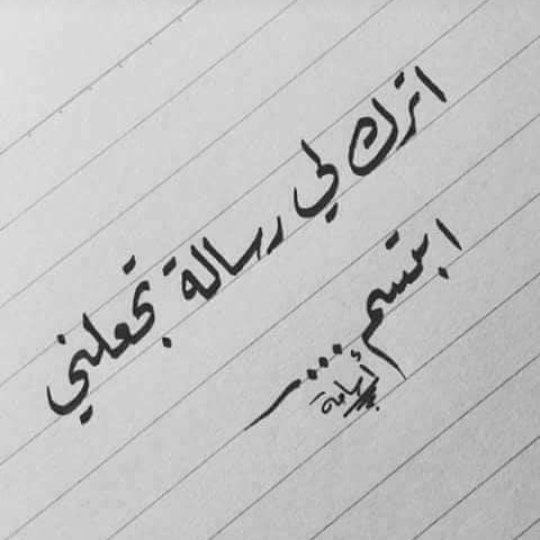 اترك لي رسالة تجعلني
ابتسم ....